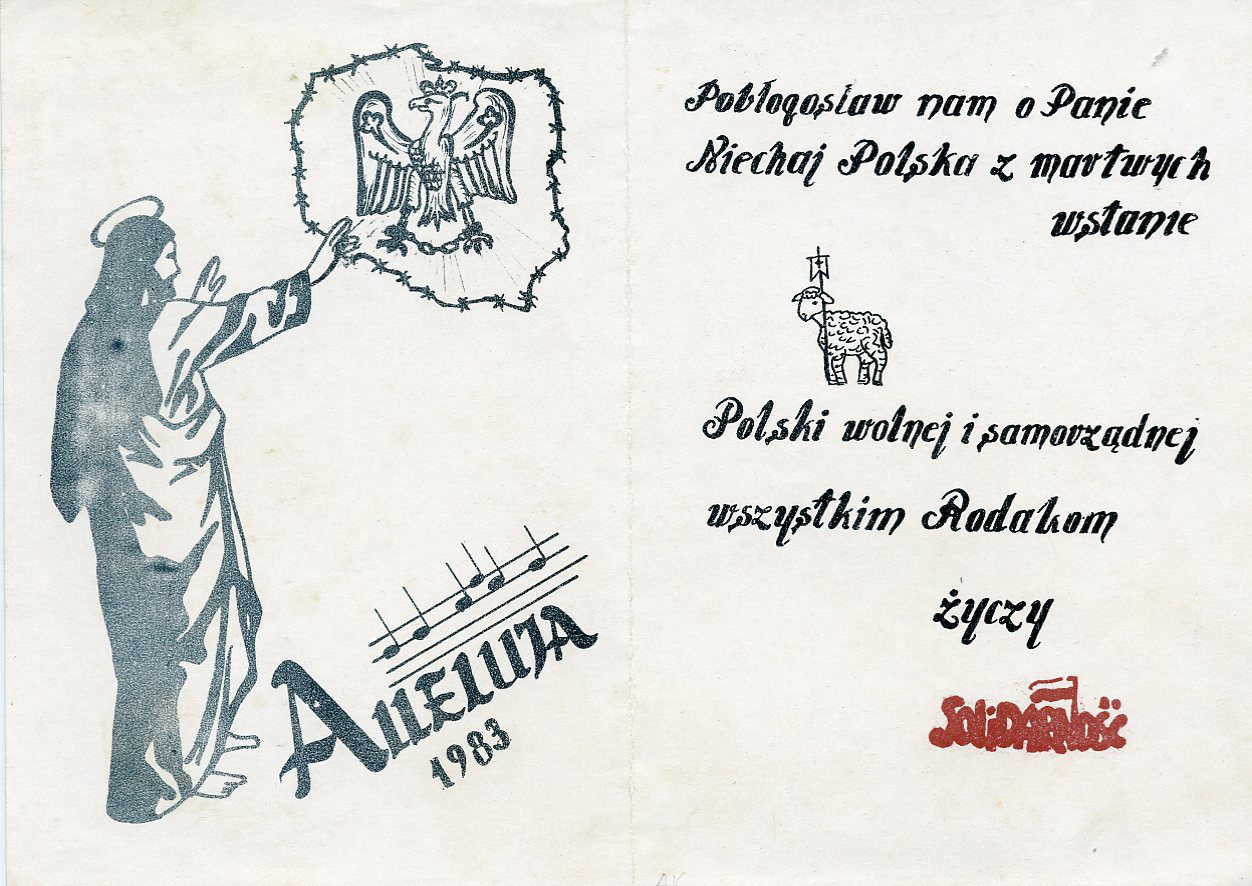 ALLELUJA
1983
Pobłogosław nam o Panie
Niechaj Polska z martwych
wstanie
Polski wolnej i samorządnej
wszystkim Rodakom
życzy
SOLIDARNOŚĆ